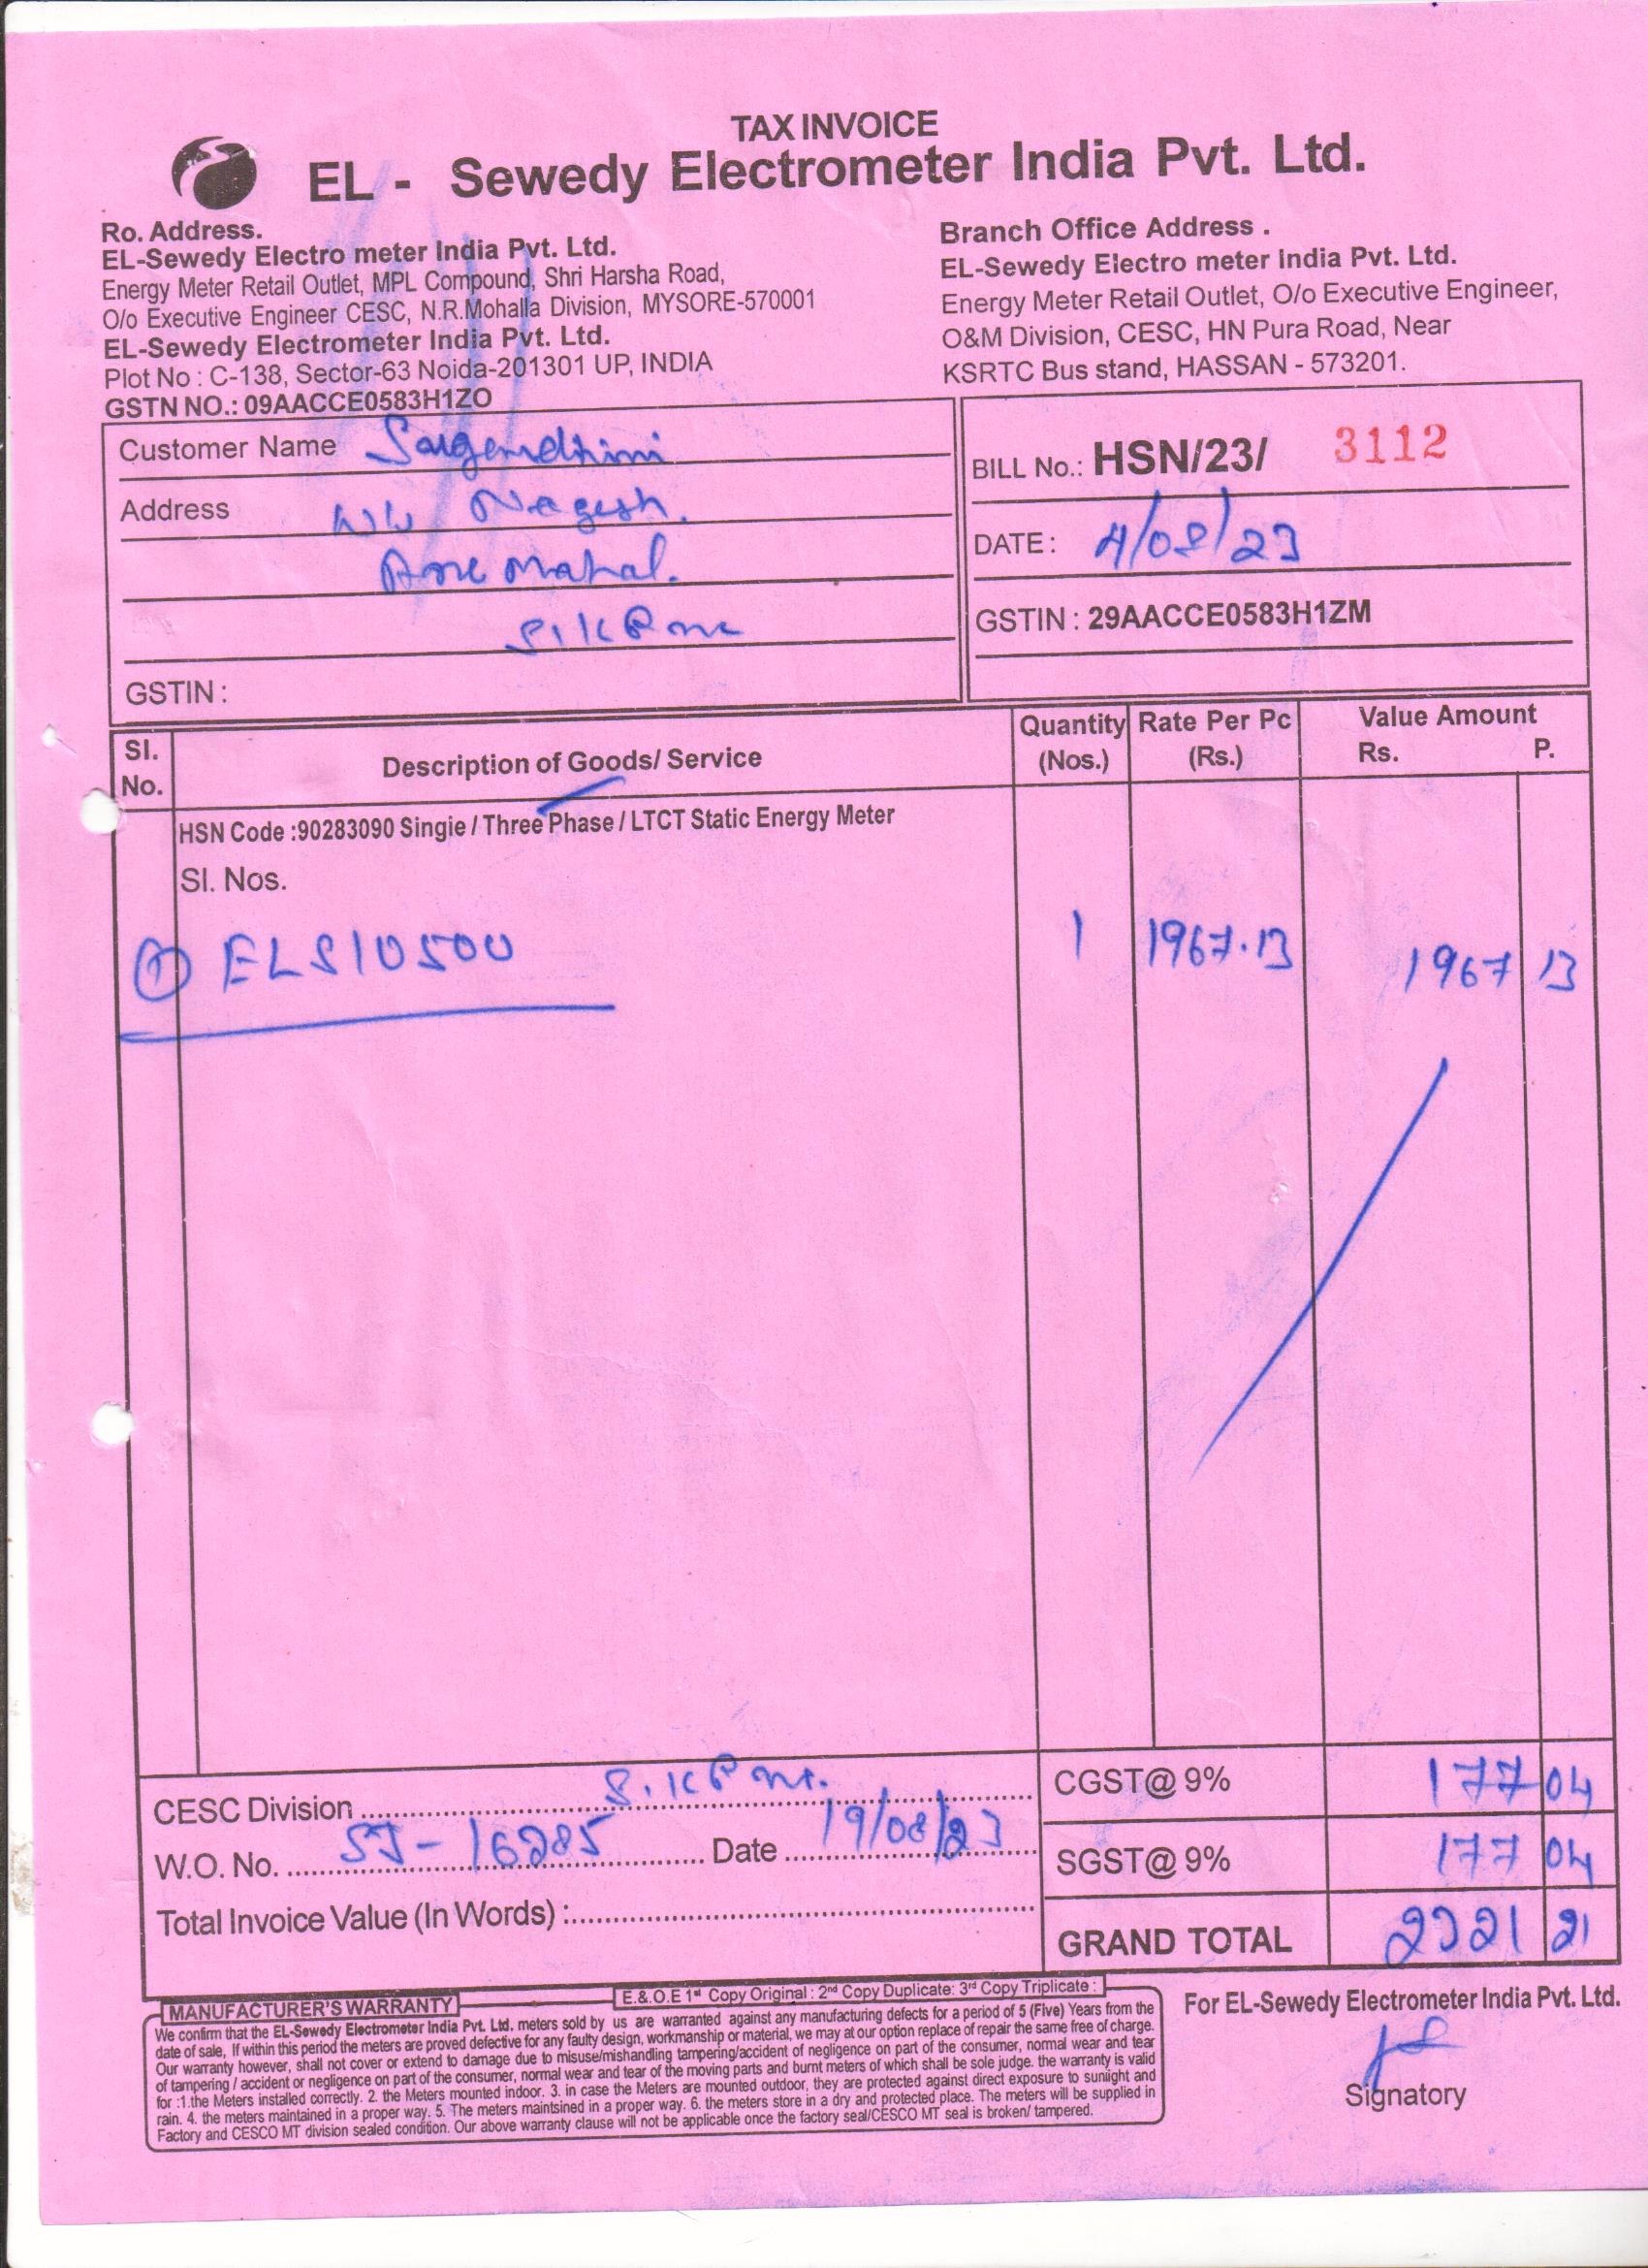 TAX INVOICE
EL - Sewedy Electrometer India Pvt. Ltd.
Ro. Address.
EL-Sewedy Electro meter India Pvt. Ltd.
Energy Meter Retail Outlet, MPL Compound, Shri Harsha Road,
O/o Executive Engineer CESC, N.R.Mohalla Division, MYSORE-570001
EL-Sewedy Electrometer India Pvt. Ltd.
Plot No : C-138, Sector-63 Noida-201301 UP, INDIA
GSTN NO.: 09AACCE0583H1ZO
Branch Office Address .
EL-Sewedy Electro meter India Pvt. Ltd.
Energy Meter Retail Outlet, O/o Executive Engineer,
O&M Division, CESC, HN Pura Road, Near
KSRTC Bus stand, HASSAN - 573201.
Customer Name
Address Nagesh.
Mahal.
GSTIN :
BILL No.: HSN/23/ 3112
DATE : 4/08/23
GSTIN : 29AACCE0583H1ZM
Sl. No. Description of Goods/ Service Quantity (Nos.) Rate Per Pc (Rs.) Value Amount Rs. P.
HSN Code :90283090 Singie / Three Phase / LTCT Static Energy Meter
Sl. Nos.
1 ELS10500 1 1967.13 1967 13
CESC Division
W.O. No. SJ-16285 Date 19/08/23
Total Invoice Value (In Words) :
CGST@ 9% 177 04
SGST@ 9% 177 04
GRAND TOTAL 2321 21
E.&.O.E 1st Copy Original : 2nd Copy Duplicate: 3rd Copy Triplicate :
MANUFACTURER'S WARRANTY
We confirm that the EL-Sewedy Electrometer India Pvt. Ltd. meters sold by us are warranted against any manufacturing defects for a period of 5 (Five) Years from the
date of sale, If within this period the meters are proved defective for any faulty design, workmanship or material, we may at our option replace of repair the same free of charge.
Our warranty however, shall not cover or extend to damage due to misuse/mishandling tampering/accident of negligence on part of the consumer, normal wear and tear
of tampering / accident or negligence on part of the consumer, normal wear and tear of the moving parts and burnt meters of which shall be sole judge. the warranty is valid
for :1.the Meters installed correctly. 2. the Meters mounted indoor. 3. in case the Meters are mounted outdoor, they are protected against direct exposure to suniight and
rain. 4. the meters maintained in a proper way. 5. The meters maintsined in a proper way. 6. the meters store in a dry and protected place. The meters will be supplied in
Factory and CESCO MT division sealed condition. Our above warranty clause will not be applicable once the factory seal/CESCO MT seal is broken/ tampered.
For EL-Sewedy Electrometer India Pvt. Ltd.
Signatory